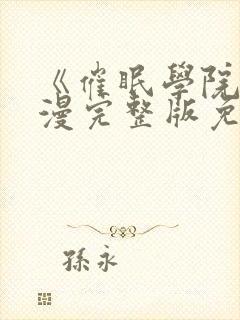 《催眠學院
漫完整版免
孫永